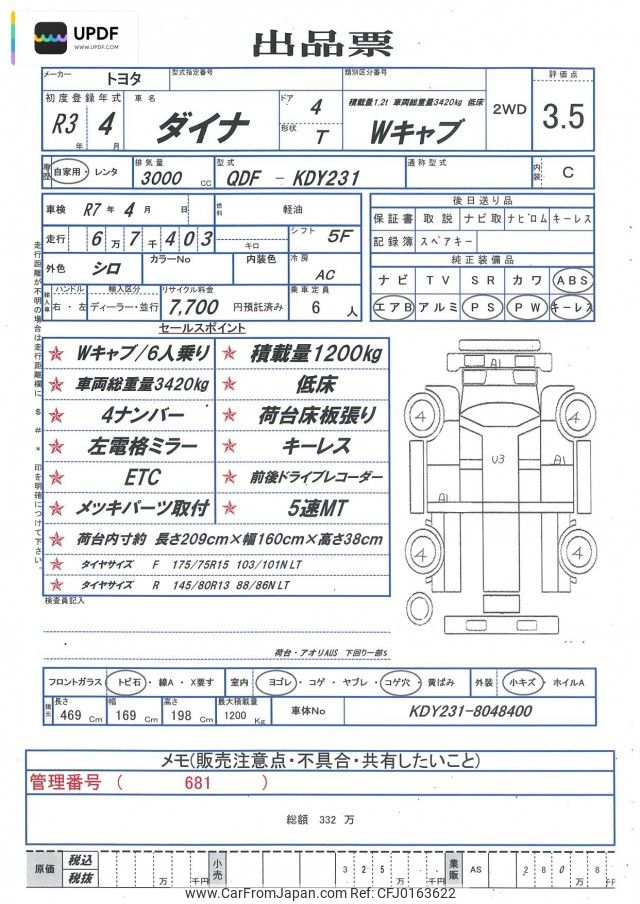 UPDF
WWW.UPDF.COM
出品票
メーカー トヨタ 型式指定番号 類別区分番号 評価点
初度登録年式 R3 年 4 月 車名 ダイナ ドア 4 形状 T 積載量1.2t 車両総重量3420kg 低床 Wキャブ 2WD 3.5
車歴 自家用・レンタ 排気量 3000 cc 型式 QDF - KDY231 通称型式 内装 C
車検 R7 年 4 月 日 燃料 軽油
走行 6 万 7 千 4 0 3 キロ シフト 5F
外色 シロ カラーNo 内装色 冷房 AC
輸入車 ハンドル 右・左 輸入区分 ディーラー・並行 リサイクル料金 7,700 円預託済み 乗車定員 6 人
後日送り品
保証書 取説 ナビ取 ナビロム キーレス
記録簿 スペアキー
純正装備品
ナビ TV SR カワ ABS
エアB アルミ PS PW キーレス
走行距離が不明の場合は走行距離欄に $ # * 印を明確につけて下さい。
セールスポイント
Wキャブ/6人乗り 積載量1200kg
車両総重量3420kg 低床
4ナンバー 荷台床板張り
左電格ミラー キーレス
ETC 前後ドライブレコーダー
メッキパーツ取付 5速MT
荷台内寸約 長さ209cm×幅160cm×高さ38cm
タイヤサイズ F 175/75R15 103/101N LT
タイヤサイズ R 145/80R13 88/86N LT
A1
4 4
U3
A1 A1
4 4
検査員記入
荷台・アオリAUS 下回り一部S
フロントガラス トビ石・線A・X要す 室内 ヨゴレ・コゲ・ヤブレ・コゲ穴・黄ばみ 外装 小キズ・ホイルA
諸元 長さ 469 Cm 幅 169 Cm 高さ 198 Cm 最大積載量 1200 Kg 車体No KDY231-8048400
メモ(販売注意点・不具合・共有したいこと)
管理番号 ( 681 )
総額 332 万
原価 税込 税抜 万 千円 小売 3 2 5 万 千円 業販 AS 2 8 0 万 8 千
www.CarFromJapan.com Ref: CFJ0163622